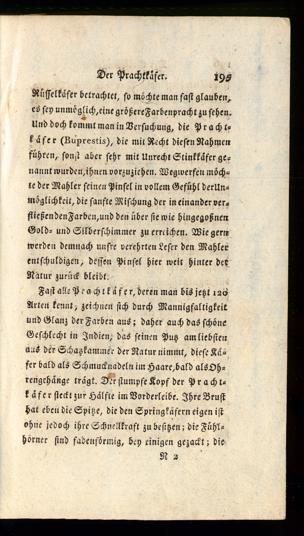 Der Prachtkäfer. 195
Rüsselkäfer betrachtet, so möchte man fast glauben,
es sey unmöglich, eine größere Farbenpracht zu sehen.
Und doch kommt man in Versuchung, die Pracht-
käfer (Buprestis), die mit Recht diesen Nahmen
führen, sonst aber sehr mit Unrecht Stinkkäfer ge-
nannt wurden, ihnen vorzuziehen. Wegwerfen möch-
te der Mahler seinen Pinsel in vollem Gefühl der Un-
möglichkeit, die sanfte Mischung der in einander ver-
fließenden Farben, und den über sie wie hingegoßnen
Gold- und Silberschimmer zu erreichen. Wie gern
werden demnach unsre verehrten Leser den Mahler
entschuldigen, dessen Pinsel hier weit hinter der
Natur zurück bleibt.
Fast alle Prachtkäfer, deren man bis jetzt 120
Arten kennt, zeichnen sich durch Mannigfaltigkeit
und Glanz der Farben aus; daher auch das schöne
Geschlecht in Indien, das seinen Putz am liebsten
aus der Schatzkammer der Natur nimmt, diese Kä-
fer bald als Schmucknadeln im Haare, bald als Oh-
rengehänge trägt. Der stumpfe Kopf der Pracht-
käfer steckt zur Hälfte im Vorderleibe. Ihre Brust
hat eben die Spitze, die den Springkäfern eigen ist
ohne jedoch ihre Schnellkraft zu besitzen; die Fühl-
hörner sind fadenförmig, bey einigen gezackt; die
N 2